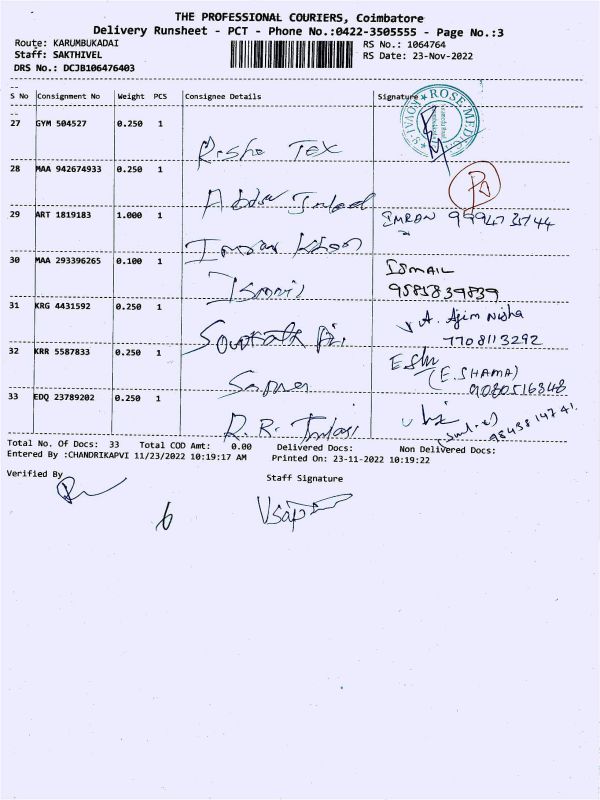 THE PROFESSIONAL COURIERS, Coimbatore
Delivery Runsheet - PCT - Phone No.:0422-3505555 - Page No.:3
Route: KARUMBUKADAI RS No.: 1064764
Staff: SAKTHIVEL RS Date: 23-Nov-2022
DRS No.: DCJB106476403
S No Consignment No Weight PCS Consignee Details Signature
ROSE MEDI
27 GYM 504527 0.250 1
Tex
28 MAA 942674933 0.250 1
Abdul
29 ART 1819183 1.000 1 IMRAN
Imran Khan
30 MAA 293396265 0.100 1 ISMAIL
Ismail 9585839839
31 KRG 4431592 0.250 1 A. Ajim Nisha
7708113292
32 KRR 5587833 0.250 1
(E. SHAMA)
9080516348
33 EDQ 23789202 0.250 1
R. R.
Total No. Of Docs: 33 Total COD Amt: 0.00 Delivered Docs: Non Delivered Docs:
Entered By :CHANDRIKAPVI 11/23/2022 10:19:17 AM Printed On: 23-11-2022 10:19:22
Verified By Staff Signature